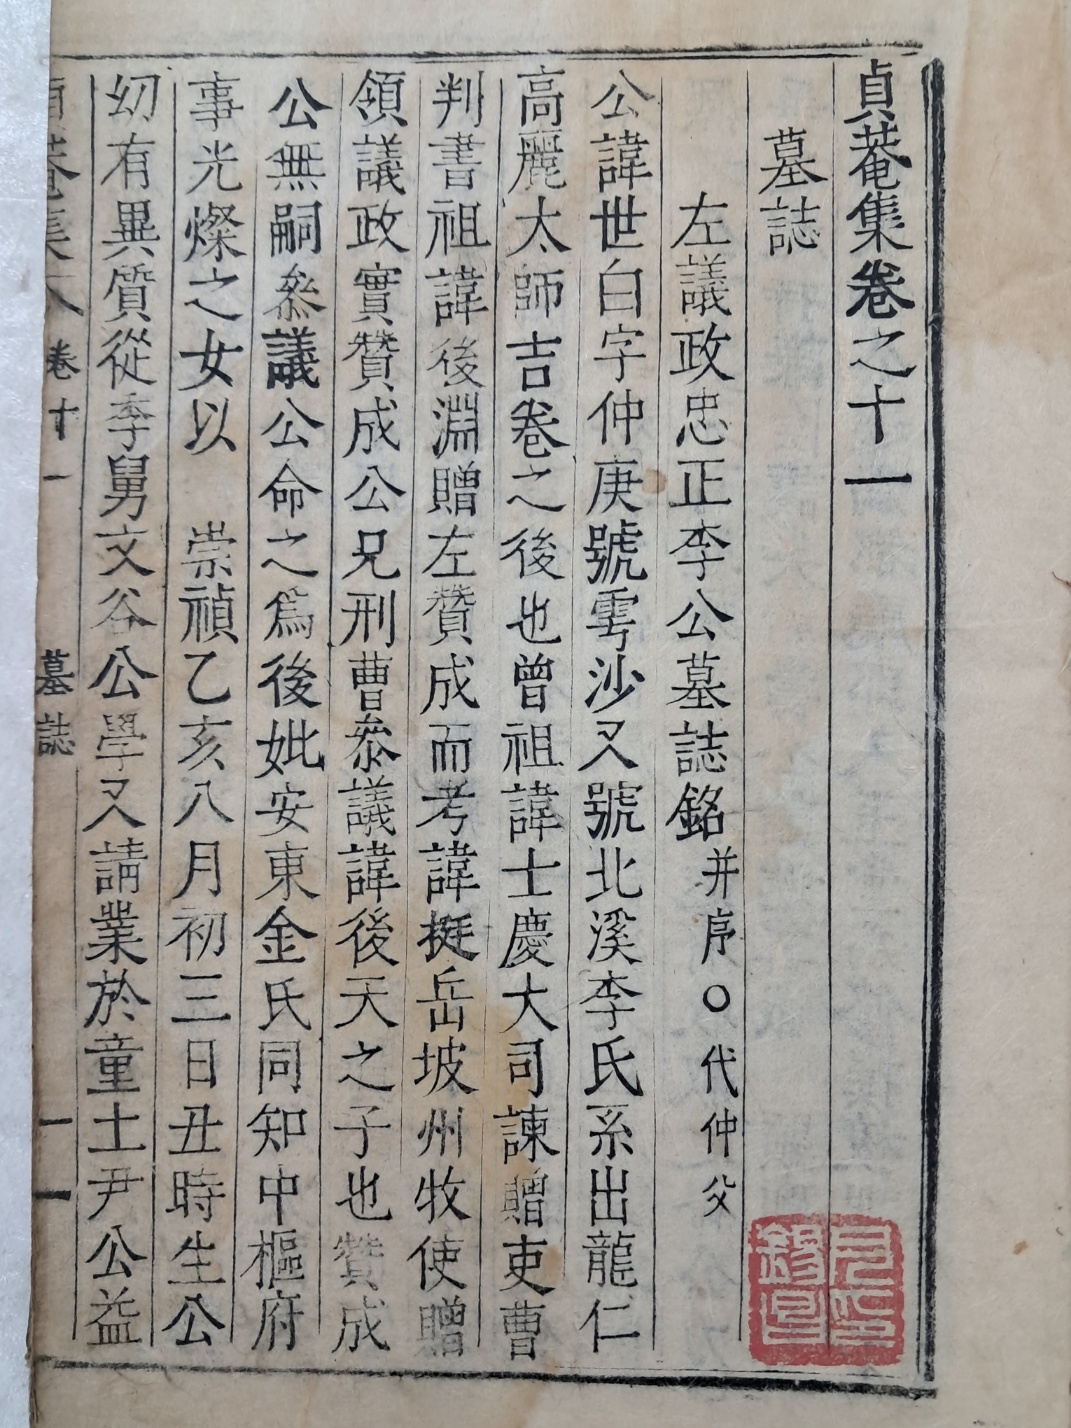 貞菴集卷之十一
墓誌
左議政忠正李公墓誌銘并序○代仲父
公諱世白字仲庚號雩沙又號北溪李氏系出龍仁
高麗太師吉卷之後也曾祖諱士慶大司諫贈吏曹
判書祖諱後淵贈左贊成而考諱挺岳坡州牧使贈
領議政實贊成公兄刑曹叅議諱後天之子也贊成
公無嗣叅議公命之爲後妣安東金氏同知中樞府
事光燦之女以 崇禎乙亥八月初三日丑時生公
幼有異質從季舅文谷公學又請業於童土尹公益
卷十一 墓誌 一